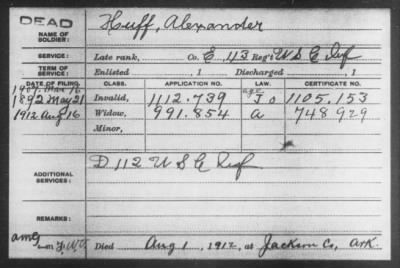 DEAD
NAME OF SOLDIER: Huff, Alexander
SERVICE: Late rank, Co. E, 113 Reg't U S C Inf
TERM OF SERVICE: Enlisted , 1 Discharged , 1
DATE OF FILING. CLASS. APPLICATION NO. LAW. CERTIFICATE NO.
1907 Mar 16
1892 May 21 Invalid, 1112.739 age J o 1105.153
1912 Aug 16 Widow, 991.854 a 748929
Minor,
ADDITIONAL SERVICES: D 112 U S C Inf
REMARKS:
Died Aug 1, 1912, at Jackson Co, Ark.